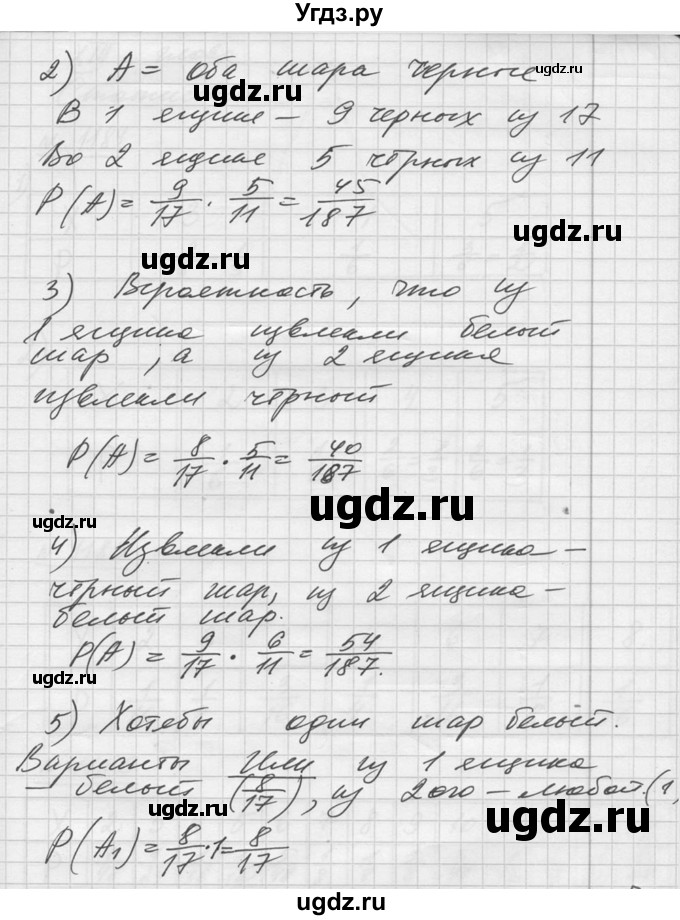 Угдз.ру
2) A = оба шара черные
В 1 ящике – 9 черных из 17
Во 2 ящике 5 чёрных из 11
P(A) = 9/17 · 5/11 = 45/187
ugdz.ru
ugdz.ru
ugdz.ru
ugdz.ru
3) Вероятность, что из
1 ящика извлекли белый
ugdz.ru
ugdz.ru
шар, а из 2 ящика
извлекли чёрный
P(A) = 8/17 · 5/11 = 40/187
ugdz.ru
ugdz.ru
4) Извлекли из 1 ящика –
чёрный шар, из 2 ящика –
ugdz.ru
белый шар.
ugdz.ru
P(A) = 9/17 · 6/11 = 54/187.
ugdz.ru
5) Хотябы один шар белый.
Варианты Или из 1 ящика
– белый (8/17), из 2ого – любой. (1,
ugdz.ru
ugdz.ru
P(A₁) = 8/17 · 1 = 8/17
ugdz.ru
ugdz.ru